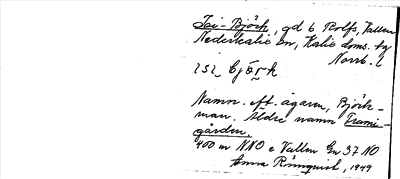 Isi-Björk, gd t. Rolfs, Vallen
Nederkalix sn, Kalix doms. by
Norrb. l
Namn. eft. ägaren, Björk-
man. Äldre namn Frami-
gården.
400 m NNO e Vallen Gn 37 NO
Anna Rönnquist, 1949